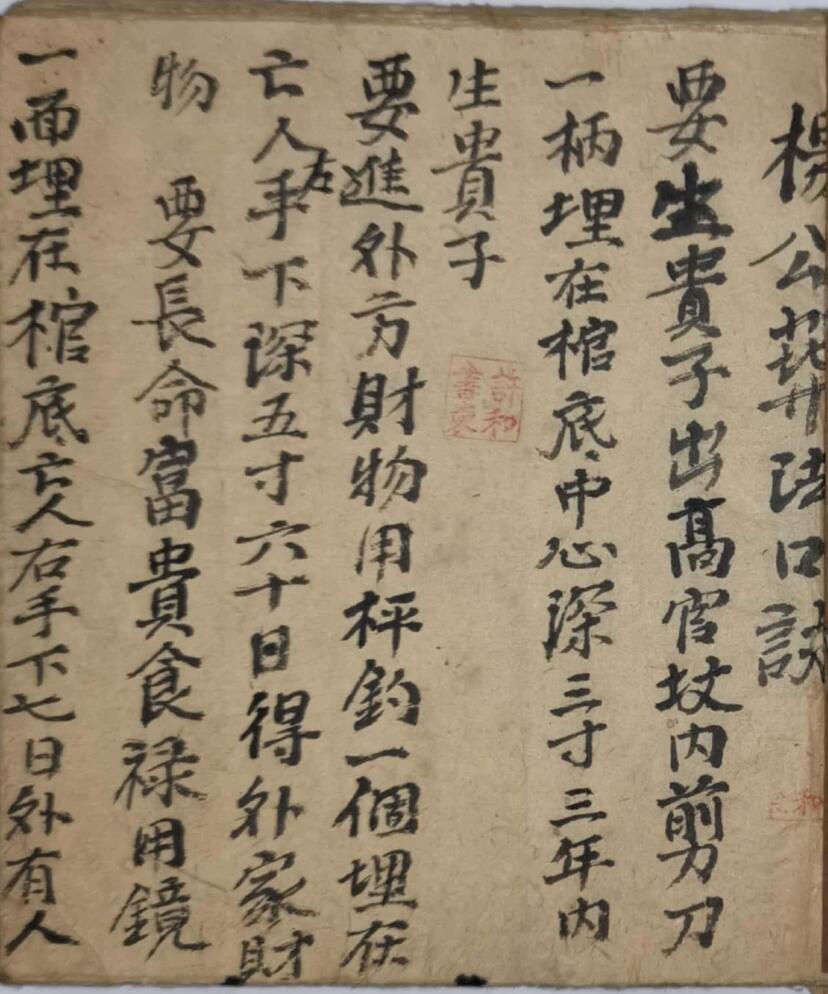 楊公葬法口訣
要生貴子出高官坟內剪刀
一柄埋在棺底中心深三寸三年內
生貴子
要進外方財物用枰鈎一個埋在
亡人左手下深五寸六十日得外家財
物 要長命富貴食禄用鏡
一面埋在棺底亡人右手下七日外有人
許和
書東